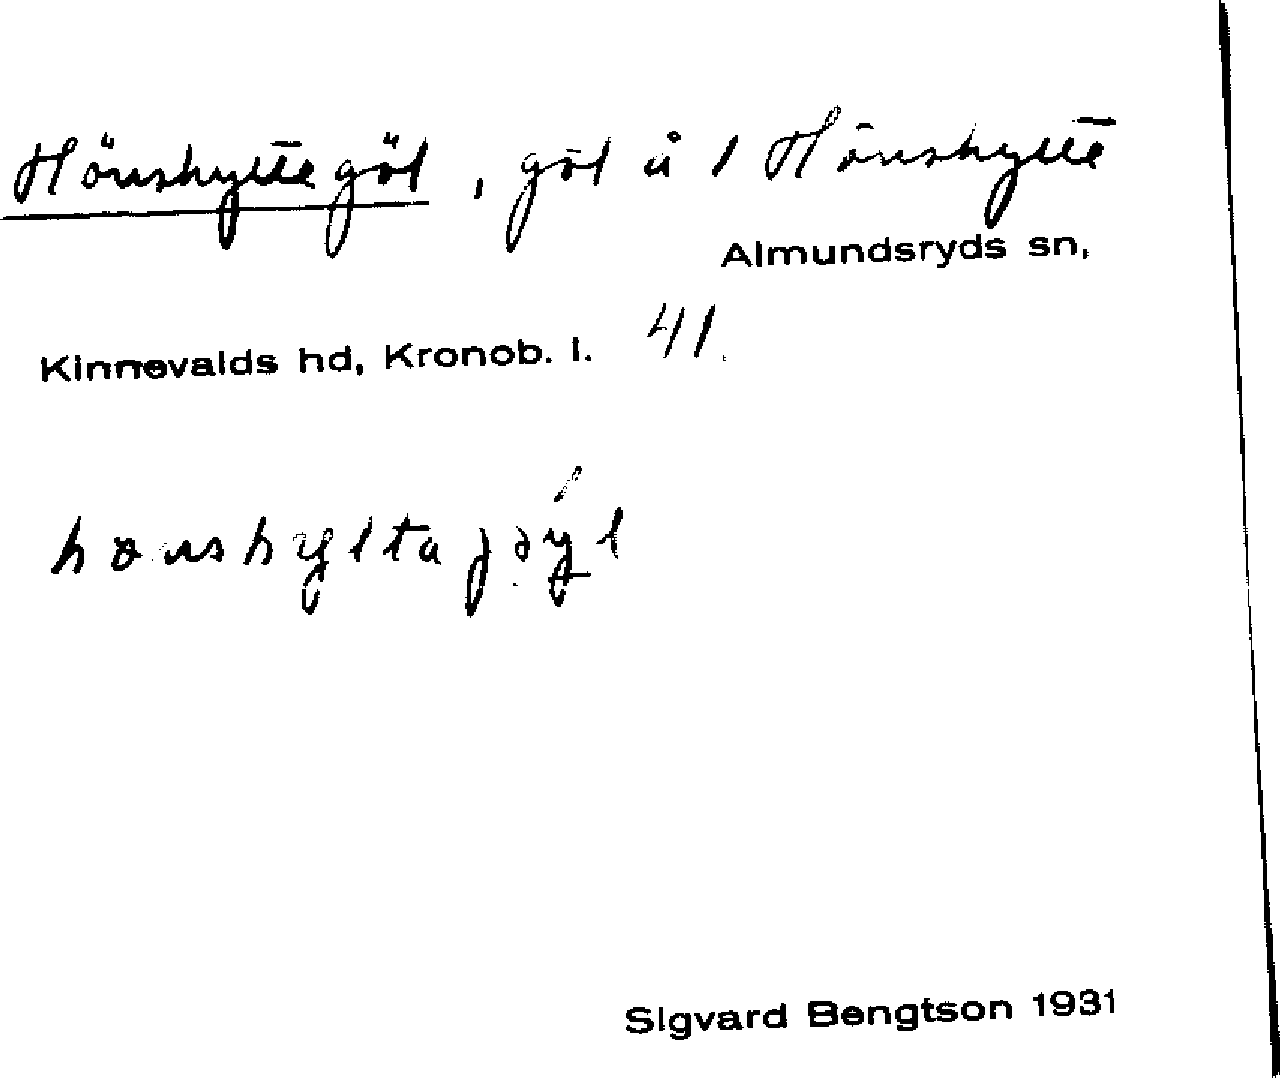 Hönshyltegöl, göl å 1 Hönshylte
Almundsryds sn,
Kinnevalds hd, Kronob. l. 41.
Sigvard Bengtson 1931